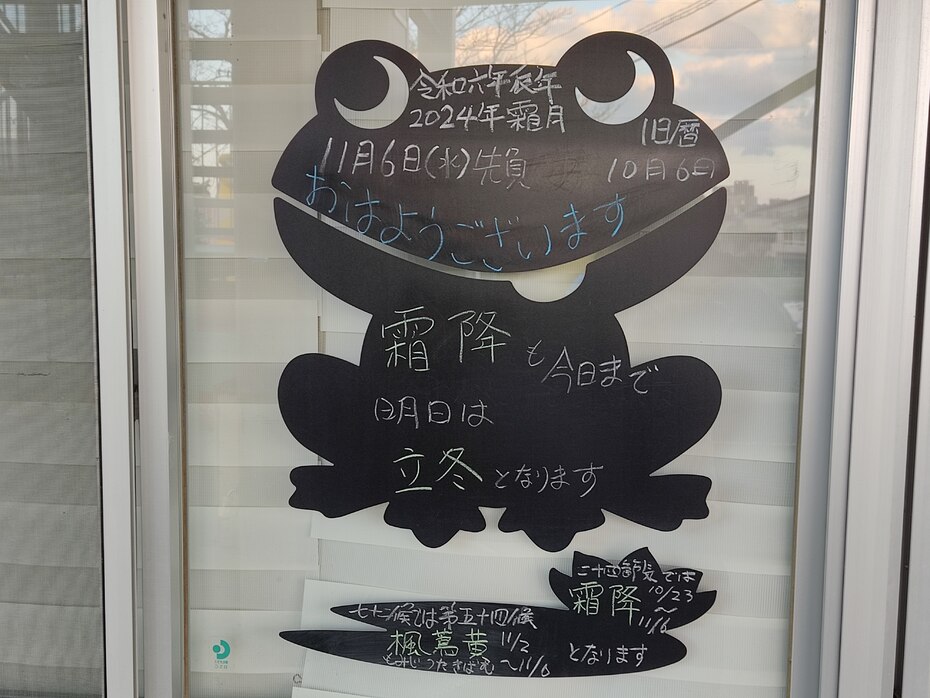 令和六年辰年
2024年霜月
11月6日(水)先負
旧暦
10月6日
おはようございます
霜降も今日まで
明日は
立冬となります
二十四節気では
霜降 10/23
～
11/6
となります
七十二候では第五十四候
楓蔦黄 11/2
もみじつたきばむ ～11/6